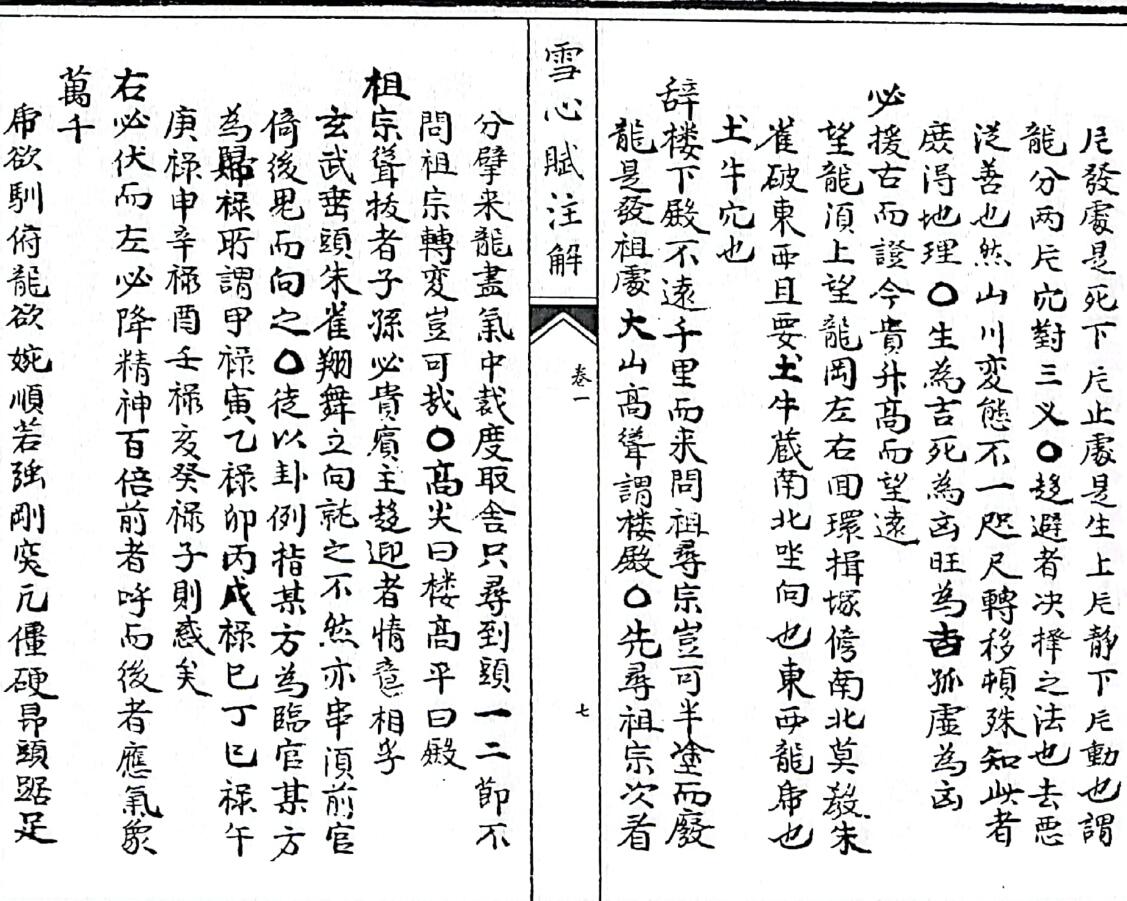 片發處是死下片止處是生上片静下片動也謂
龍分两片穴對三义〇趍避者决擇之法也去悪
従善也然山川变態不一咫尺轉移頓殊知此者
庶淂地理〇生為吉死為凶旺為吉孤虛為凶
必援古而證今貴升髙而望遠
望龍湏上望龍岡左右回環揖塚傍南北莫教朱
雀破東西且要土牛蔵南北坐向也東西龍乕也
土牛穴也
辞楼下殿不遠千里而来問祖尋宗豈可半塗而廢
龍是發祖處大山髙聳謂楼殿〇先尋祖宗次看
雪心賦注解
卷一
七
分擘来龍盡氣中裁度取舍只尋到頭一二節不
問祖宗轉变豈可㢤〇髙尖曰楼髙平曰殿
祖宗聳拔者子孫必貴賔主趍迎者情意相孚
玄武垂頭朱雀翔舞立向就之不然亦串湏前官
倚後鬼而向之〇徒以卦例指某方為臨官某方
為歸禄所謂甲禄寅乙禄卯丙戊禄巳丁巳禄午
庚禄申辛禄酉壬禄亥癸禄子則惑矣
右必伏而左必降精神百倍前者呼而後者應氣象
萬千
乕欲馴俯龍欲婉順若強剛突兀僵硬昂頭踞足